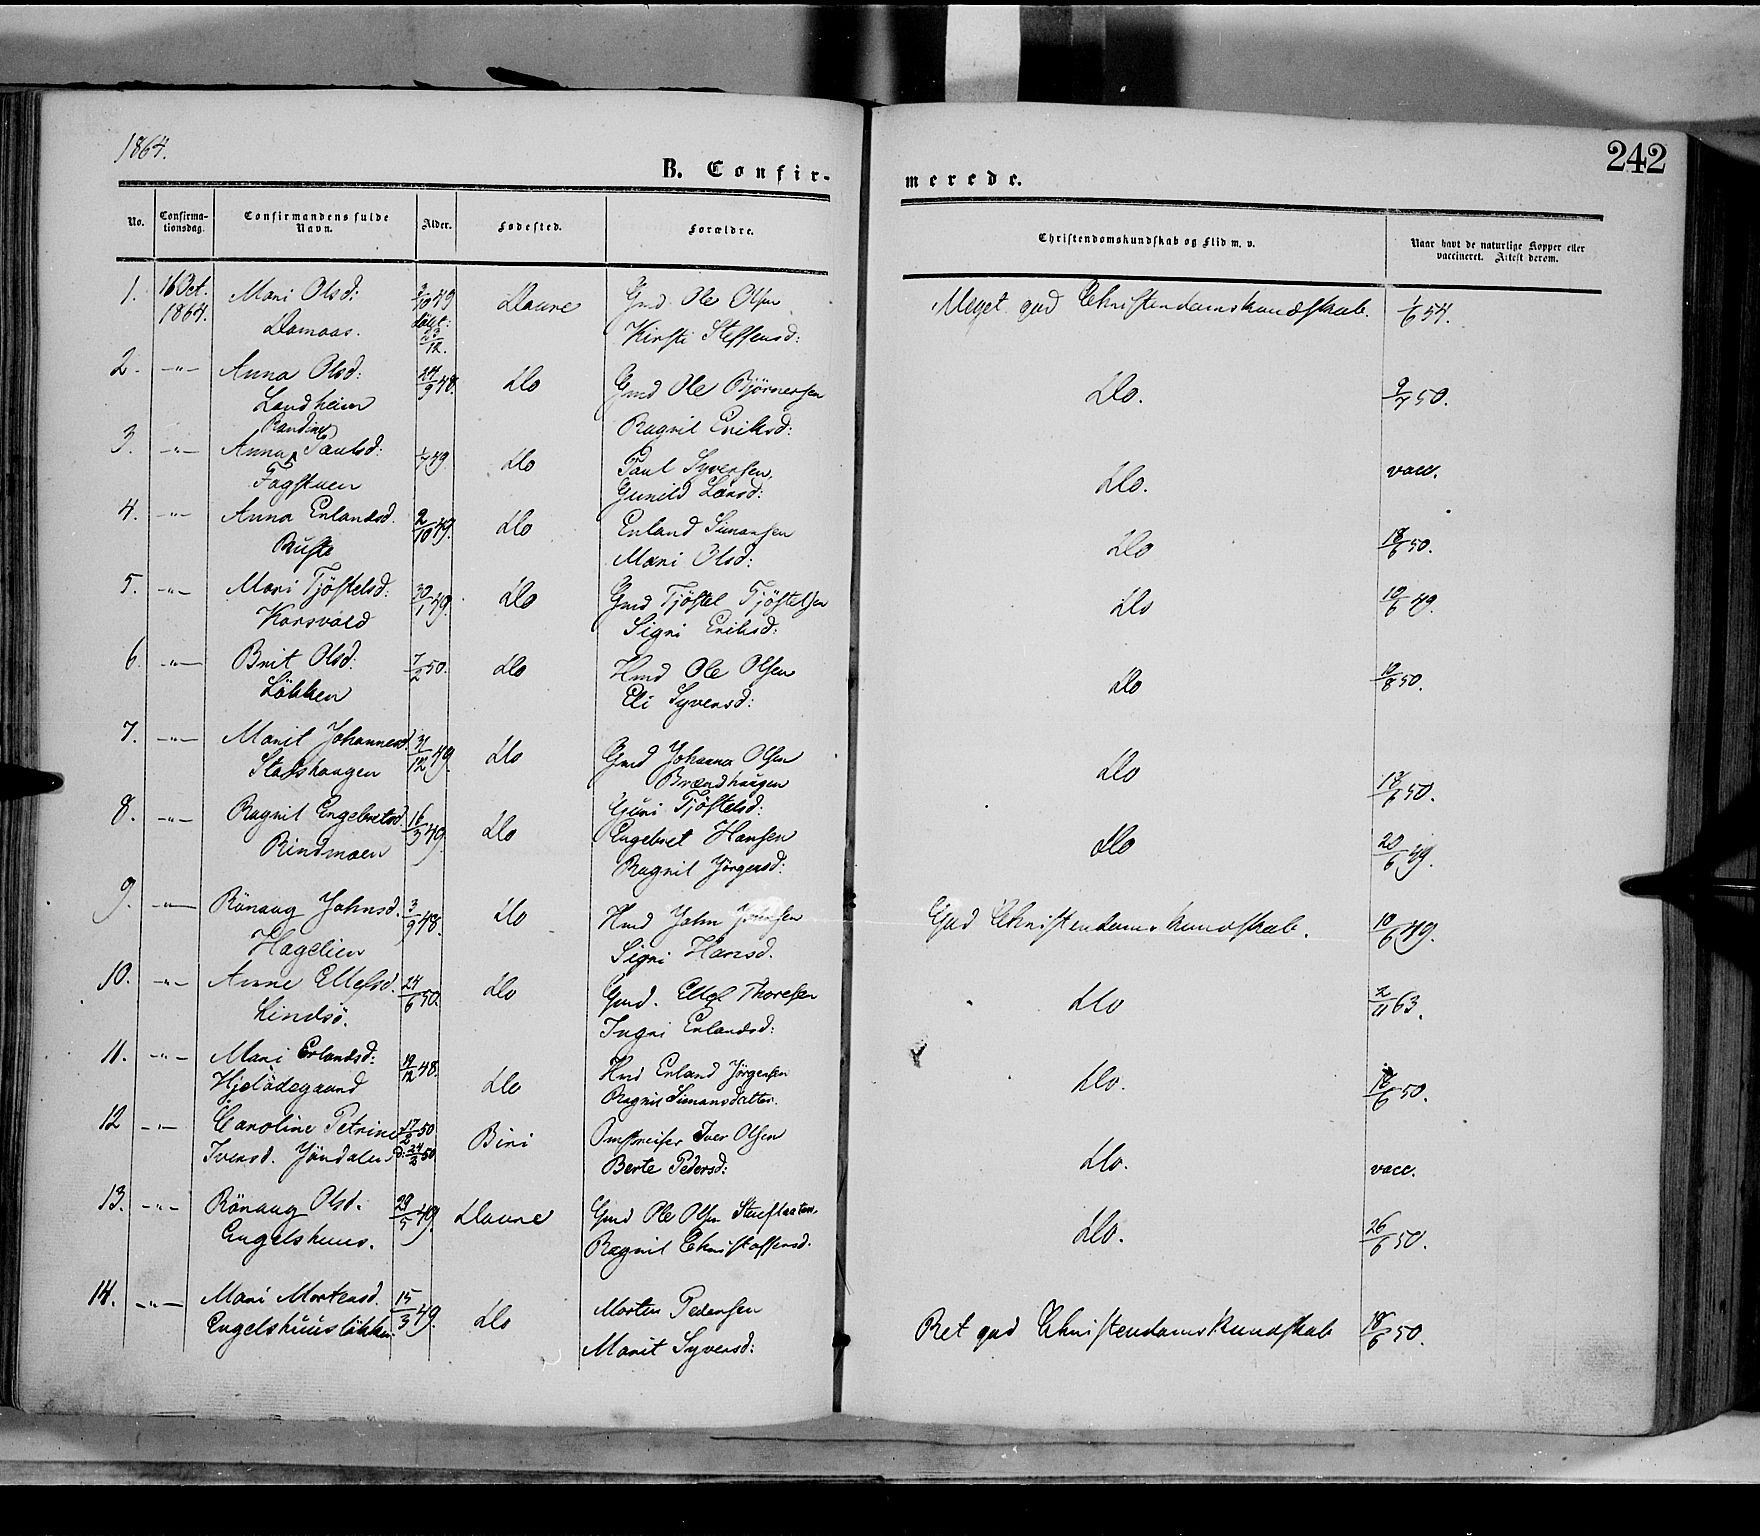 1864.
242
B. Confir-
merede.
No.
Confirma-
tionsdag.
Confirmandens fulde
Navn.
Alder.
Fødested.
Forældre.
Christendomskundskab og Flid m. v.
Naar havt de naturlige Kopper eller
vaccineret. Attest derom.
1. 16 Oct. Mari Olsd: 49 Dovre Gmd. Ole Olsen Meget god Christendomskundskab. 1/6 54.
1864. Domaas. Kirsti Steffensd:
2. -"- Anna Olsd: 24/9 48. Do Gmd Ole Bjørnersen Do. 9/7 50.
Landheim Ragnil Eriksd:
Randine
3. -"- Anna Paulsd: 1/7 49. Do Paul Syversen, Do. vacc.
Fogstuen Gunild Larsd:
4. -"- Anna Erlandsd. 2/10 49. Do Erland Simensen Do 18/6 50.
Buste Mari Olsd:
5. -"- Mari Tjøstelsd: 30/1 49. Do Gmd Tjøstel Tjøstelsen Do 10/6 49.
Korsvold Signi Eriksd:
6. -"- Brit Olsd: 7/2 50. Do Hmd Ole Olsen Do 12/8 50.
Løkken Eli Syversd:
7. -"- Marit Johannesd. 31/12 49. Do Gmd Johannes Olsen Do 18/6 50.
Stadshaugen Brændhaugen
Guri Tjøstelsd:
8. -"- Ragnil Engebretsd. 16/3 49. Do Engebret Hansen Do 20/6 49.
Rindmoen Ragnil Jørgensd:
9. -"- Rønaug Johnsd. 3/9 48. Do Hmd John Johnsen God Christendomskundskab. 10/6 49.
Hagelien Signi Hansd.
10. -"- Anne Ellefsd. 24/6 50. Do Gmd. Ellef Thoresen Do 2/11 63.
Lindsø. Ingri Erlandsd:
11. -"- Mari Erlandsd: 19/12 48. Do Hmd Erland Jørgensen Do. 18/6 50.
Hjelødegaard Ragnil Simensdatter.
12 -"- Caroline Petrine 17/2 50 Biri Omstreifer Iver Olsen Do. vacc.
Iversd. Jøndalen 24/2 50 Berte Pedersd:
13. -"- Rønaug Olsd. 29/5 49. Dovre Gmd Ole Olsen Do. 26/6 50.
Engelshuus. Ragnil Christoffersd.
14. -"- Mari Mortensd. 15/3 49. Do Morten Pedersen Ret god Christendomskundskab 18/6 50.
Engelshuusløkken Marit Syversd: